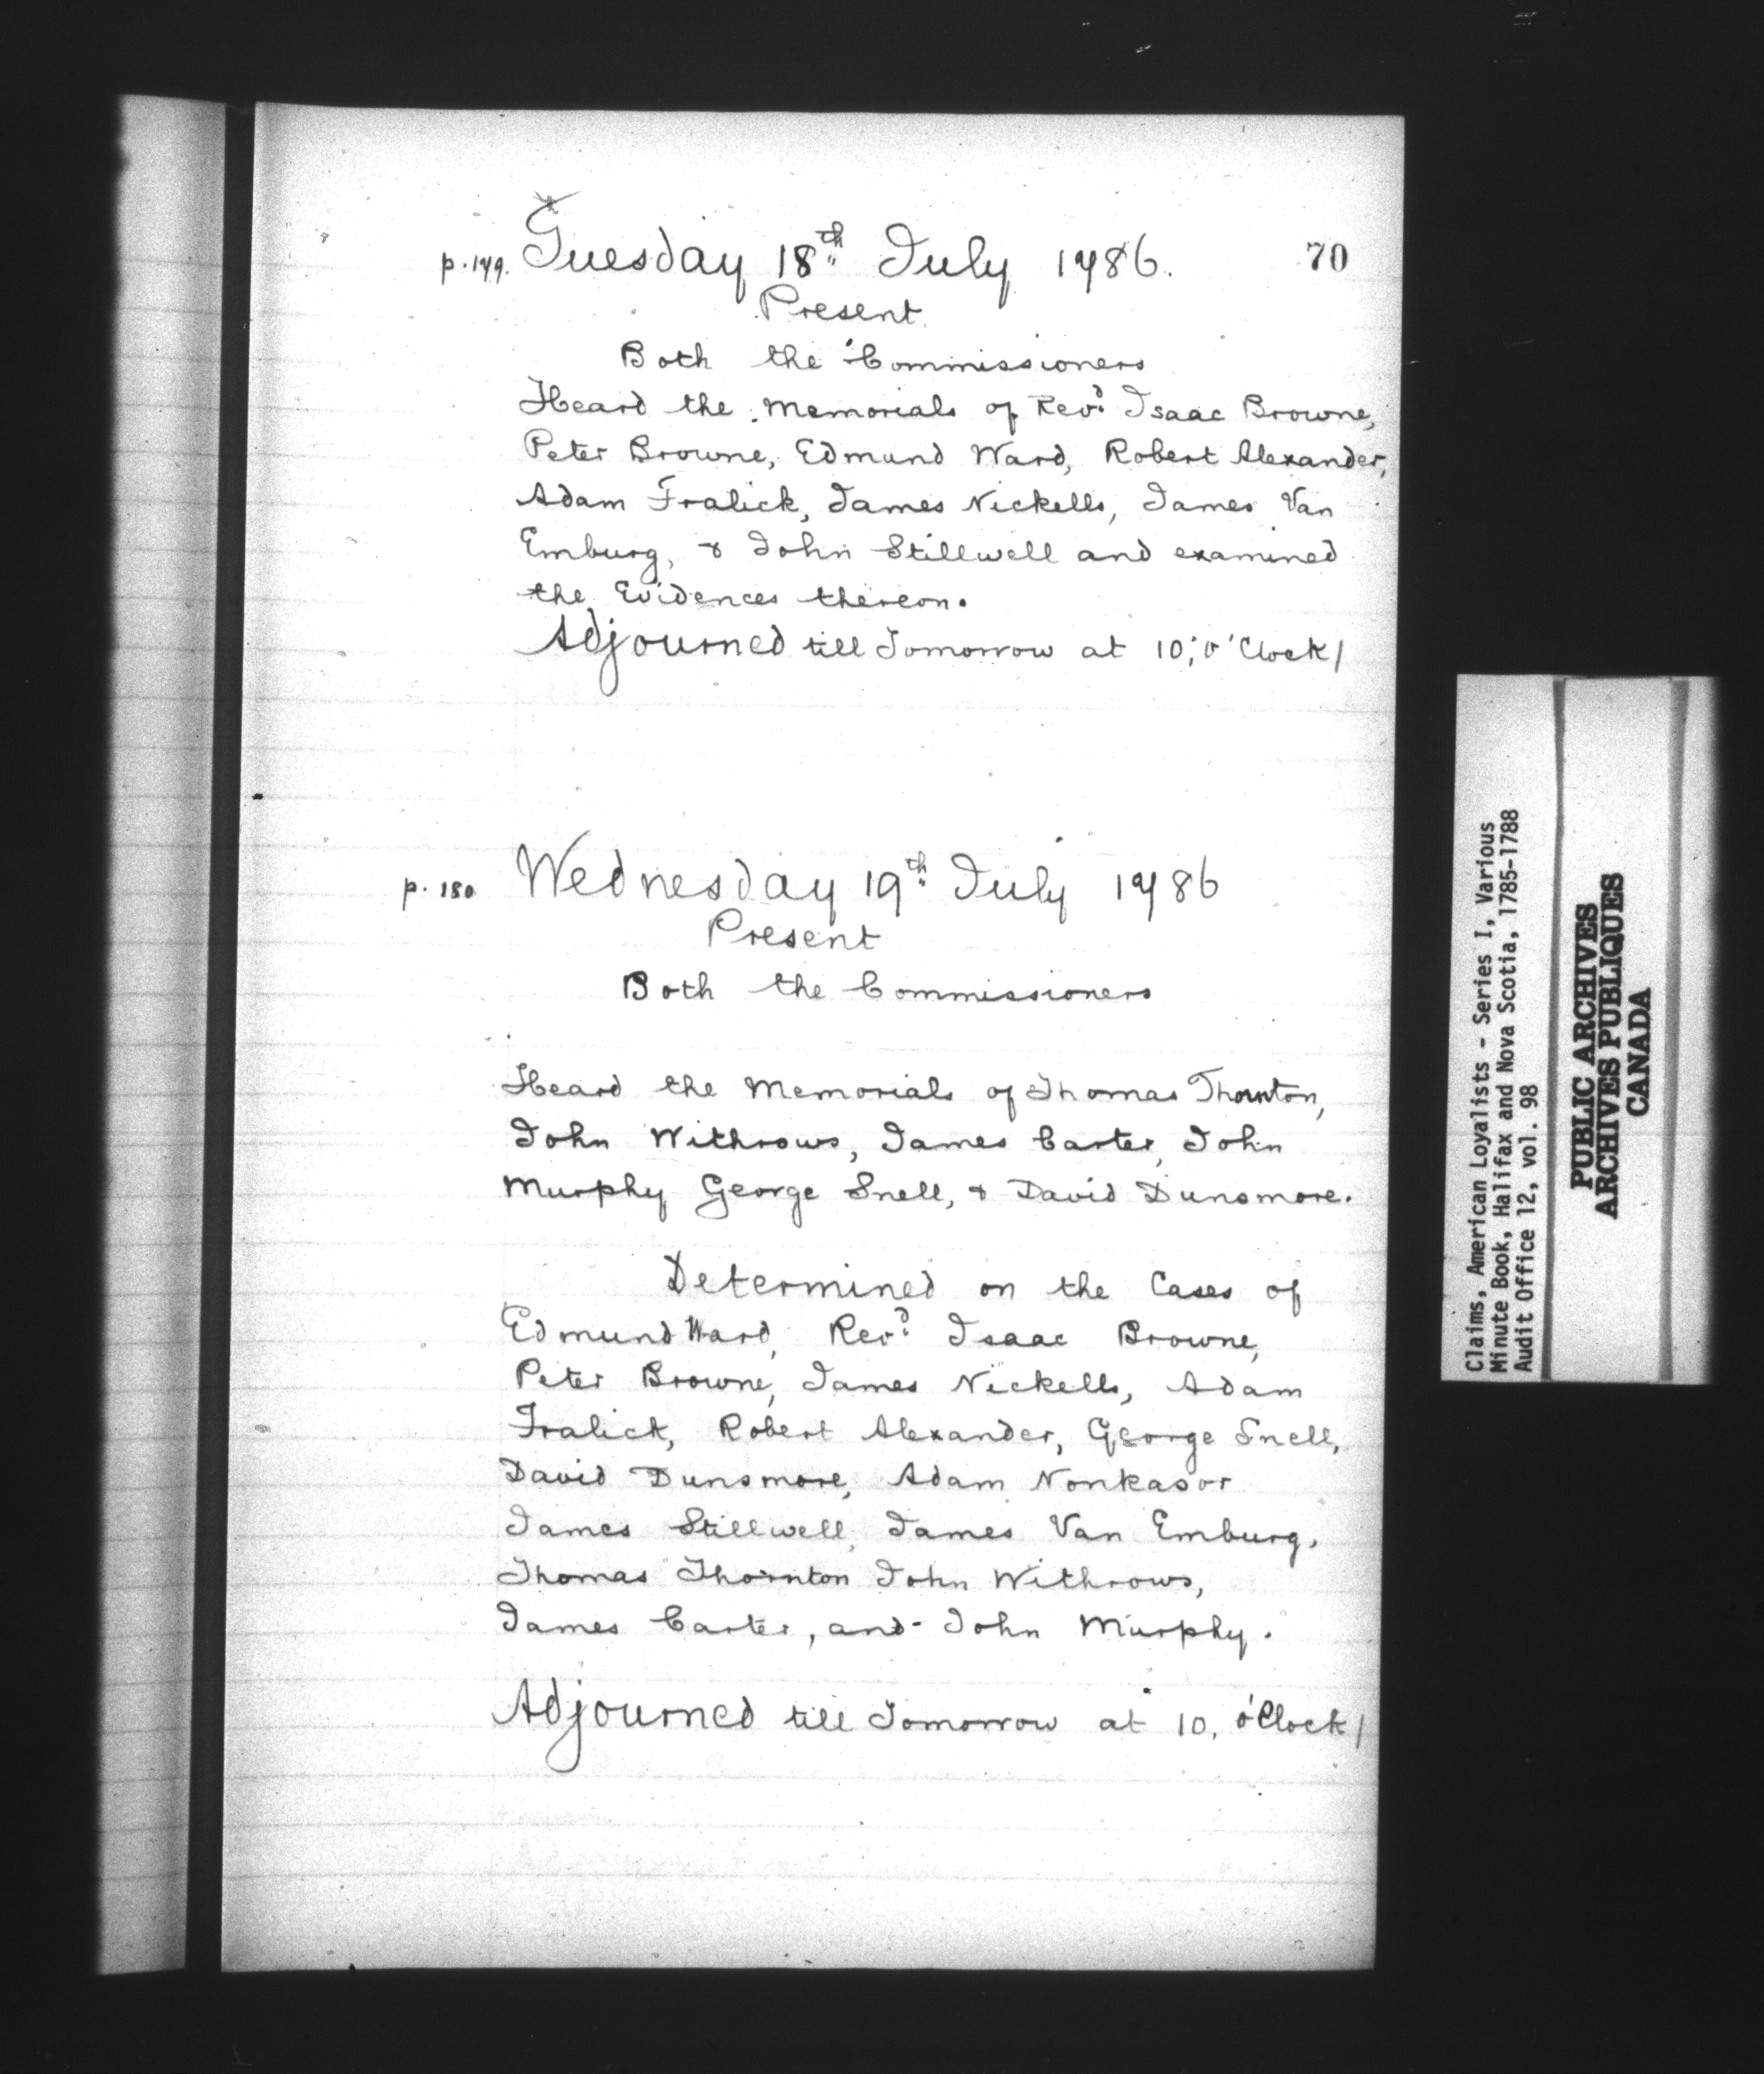 70
p. 179. Tuesday 18th July 1786.
Present
Both the Commissioners
Heard the Memorials of Revd Isaac Browne,
Peter Browne, Edmund Ward, Robert Alexander,
Adam Fralick, James Nickells, James Van
Emburg, & John Stillwell and examined
the Evidences thereon.
Adjourned till Tomorrow at 10, o'Clock/
p. 180 Wednesday 19th July 1786
Present
Both the Commissioners
Heard the Memorials of Thomas Thornton,
John Withrows, James Carter, John
Murphy George Snell, & David Dunsmore.
Determined on the Cases of
Edmund Ward, Revd Isaac Browne,
Peter Browne, James Nickells, Adam
Fralick, Robert Alexander, George Snell,
David Dunsmore, Adam Nonkasor
James Stillwell, James Van Emburg,
Thomas Thornton John Withrows,
James Carter, and John Murphy.
Adjourned till Tomorrow at 10, o'Clock/
Claims, American Loyalists - Series I, Various
Minute Book, Halifax and Nova Scotia, 1785-1788
Audit Office 12, vol. 98
PUBLIC ARCHIVES
ARCHIVES PUBLIQUES
CANADA